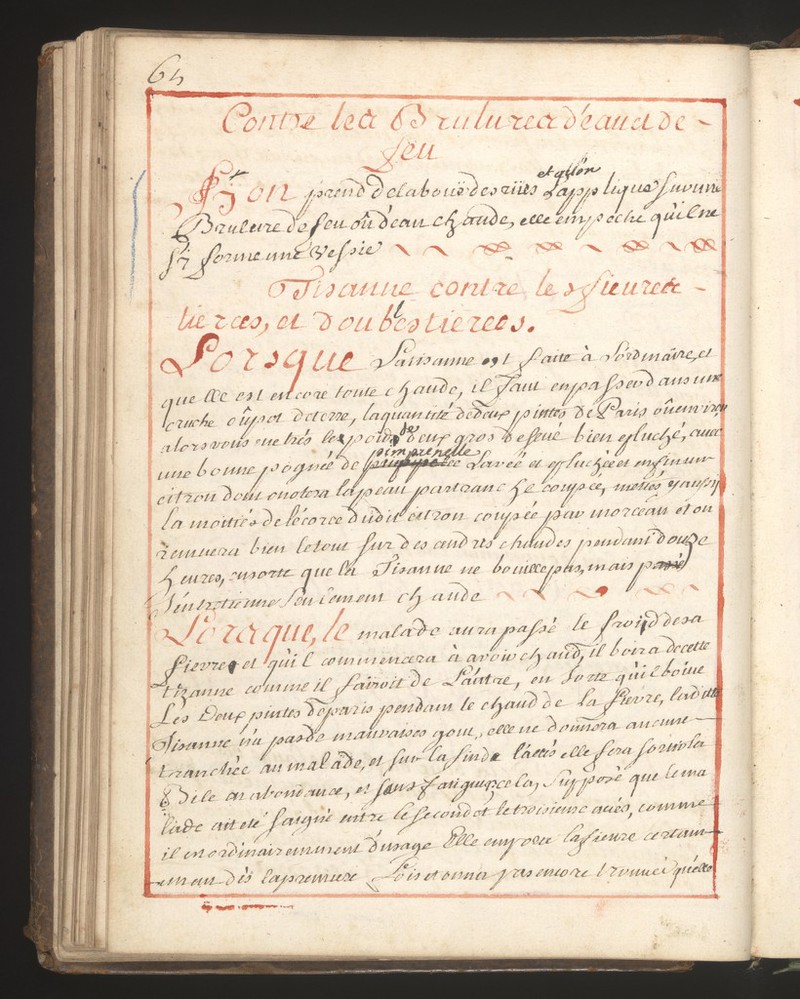 64
Contre les Brulures d'eau et de
feu
Sy on prend de la bouë des rües et qu'on L'applique sur une
Brulure de feu oû d'eau chaude, elle empeche qu'il ne
s'y forme une Vessie
Tisanne contre les fieures
tierces, et doubles tierces.
Lorsque La tisanne est faite à L'ordinaire, et
que elle est encore toute chaude, il faut en passer dans une
cruche oû pot de terre, la quantité de deux pintes de Paris oû environ
alors vous mettrés le poids de deux gros de sené bien epluché, avec
une bonne pognée de pimprenelle Lavée et epluchée et enfin un
citron dont on otera la peau par tranche coupée, mettés y aussy
la moittié de lécorce dudit citron coupée par morceau et on
remuera bien le tout sur des cendres chaudes pendant douze
heures, ensorte que la Tisanne ne bouille pas, mais
S'entretienne seulement chaude
Lorsque, le malade aura passé le froid de sa
fievre et qu'il commencera à avoir chaud, il boira de cette
tisanne comme il fairoit de L'autre, en sorte qu'il boive
Les Deux pintes de paris pendant le chaud de la fievre, laditte
Tisanne n'a pas de mauvaises gout, elle ne donnera aucune
tranchée au malade, et sur la fin de l'accés elle fera sortir la
Bile en abondance, et sans fatiguer, cela, Supposé que le ma
lade ait eté saigné entre le second et le troisieme accés, comme
il en ordinairemment d'usage Elle emporte la fieure certain
ement dès la premiere fois et on n'a pas encore trouvé qu'elle